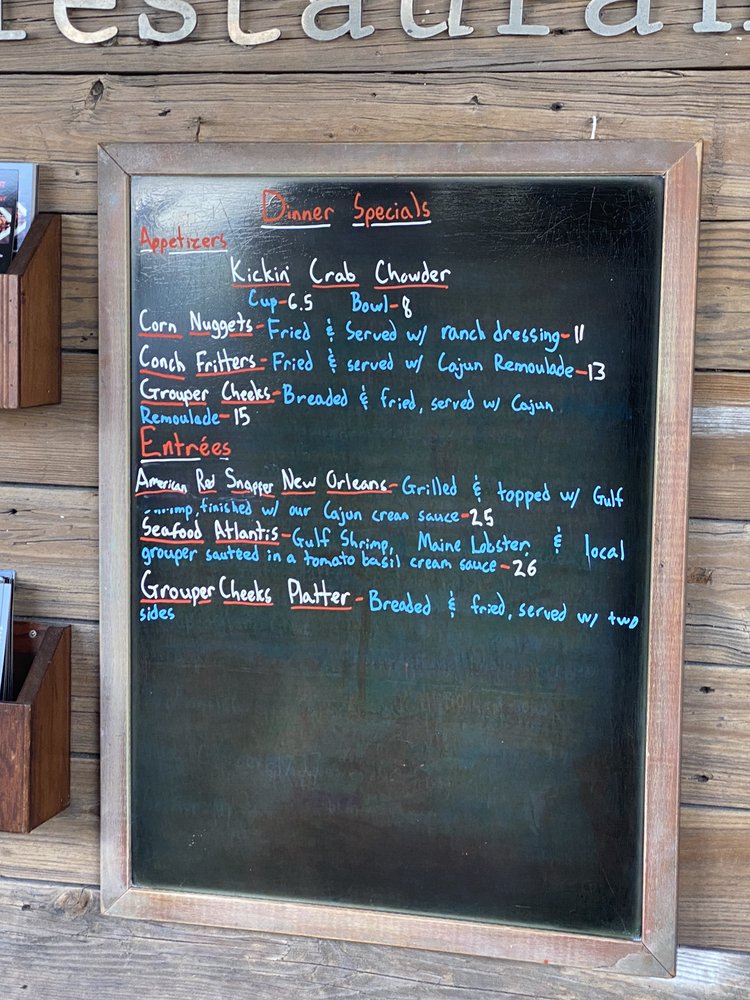 Restaurant
Dinner Specials
Appetizers
Kickin' Crab Chowder
Cup-6.5 Bowl-8
Corn Nuggets-Fried & Served w/ ranch dressing-11
Conch Fritters-Fried & served w/ Cajun Remoulade-13
Grouper Cheeks-Breaded & fried, served w/ Cajun
Remoulade-15
Entrées
American Red Snapper New Orleans-Grilled & topped w/ Gulf
Shrimp, finished w/ our Cajun cream sauce-25
Seafood Atlantis-Gulf Shrimp, Maine Lobster, & local
grouper sautéed in a tomato basil cream sauce-26
Grouper Cheeks Platter-Breaded & fried, served w/ two
sides